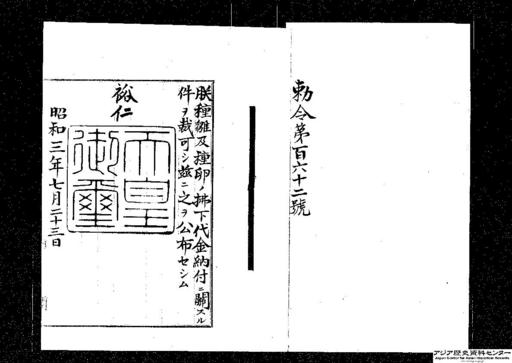 勅令第百六十二號
朕種雛及種卵ノ拂下代金納付ニ關スル
件ヲ裁可シ茲ニ之ヲ公布セシム
裕仁
天皇
御璽
昭和三年七月二十三日
アジア歴史資料センター
Japan Center for Asian Historical Records